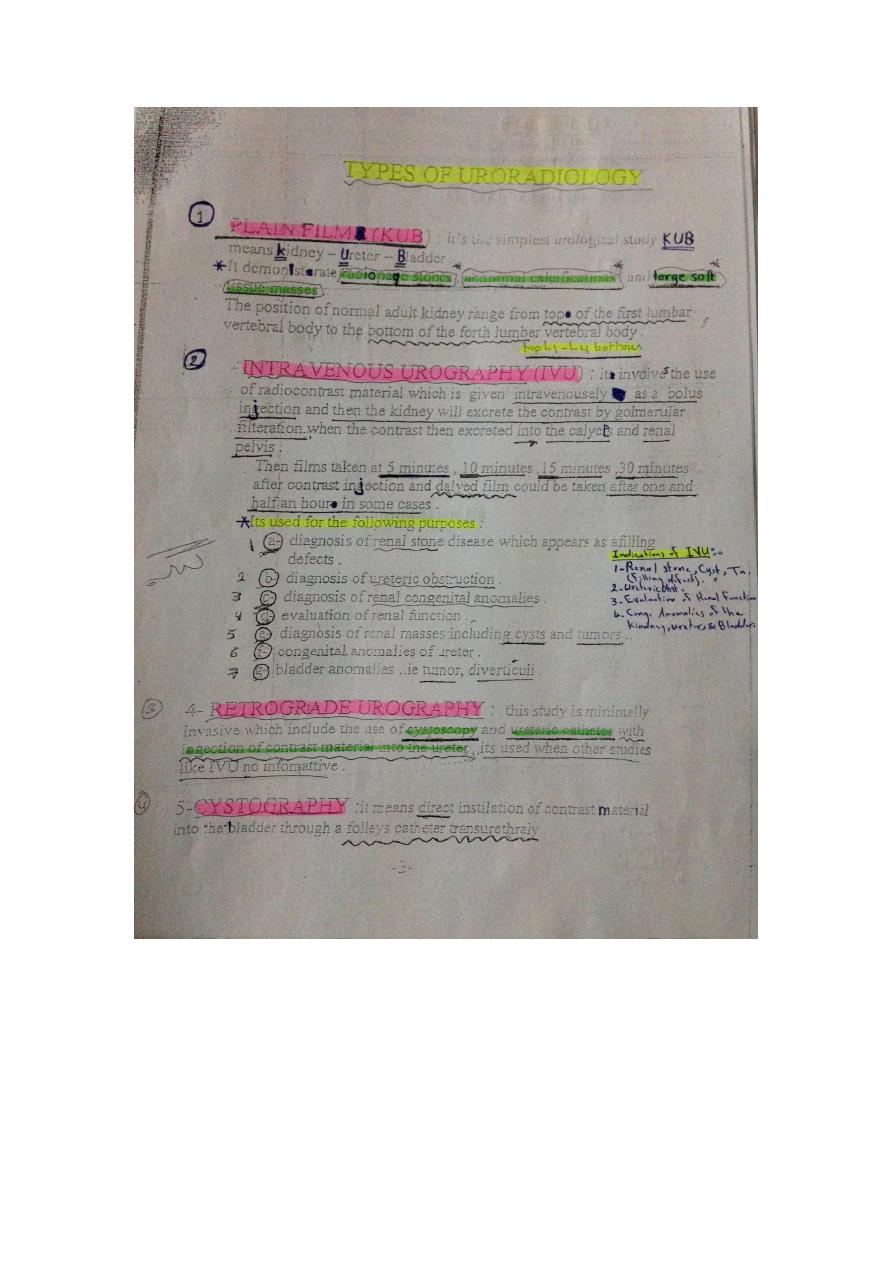 TYPES OF URORADIOLOGY
1
PLAIN FILM (KUB) : it's the simplest urological study KUB
means kidney – Ureter – Bladder
*It demonsterate radiopaqe stones, abnormal calcifications and large soft
tissue masses
The position of normal adult kidney range from top of the first lumbar
vertebral body to the bottom of the forth lumber vertebral body .
top L1 - L4 bottom
2
INTRAVENOUS UROGRAPHY (IVU) : it involves the use
of radiocontrast material which is given intravenousely as a bolus
injection and then the kidney will excrete the contrast by golmerular
filteration. when the contrast then excreted into the calyces and renal
pelvis .
Then films taken at 5 minutes , 10 minutes , 15 minutes ,30 minutes
after contrast injection and dalyed film could be taken after one and
half an hour in some cases .
*Its used for the following purposes :
1 a- diagnosis of renal stone disease which appears as afilling
defects .
2 b- diagnosis of ureteric obstruction .
3 c- diagnosis of renal congenital anomalies .
4 d- evaluation of renal function .
5 e- diagnosis of renal masses including cysts and tumors .
6 f- congenital anomalies of ureter .
7 g- bladder anomalies ..ie tumor, diverticuli .
Indications of IVU:
1- Renal stone, Cyst, Tu.
(filling defect).
2- Ureteric Obst.
3- Evaluation of Renal Function
4- Cong. Anomalies of the
Kindney, Ureters & Bladder.
3 4- RETROGRADE UROGRAPHY : this study is minimally
invasive which include the use of cystoscopy and ureteric catheter with
ingection of contrast material into the ureter, its used when other studies
like IVU no infomattive .
4 5-CYSTOGRAPHY :it means direct instilation of contrast material
into the bladder through a folleys catheter transurethraly
-3-